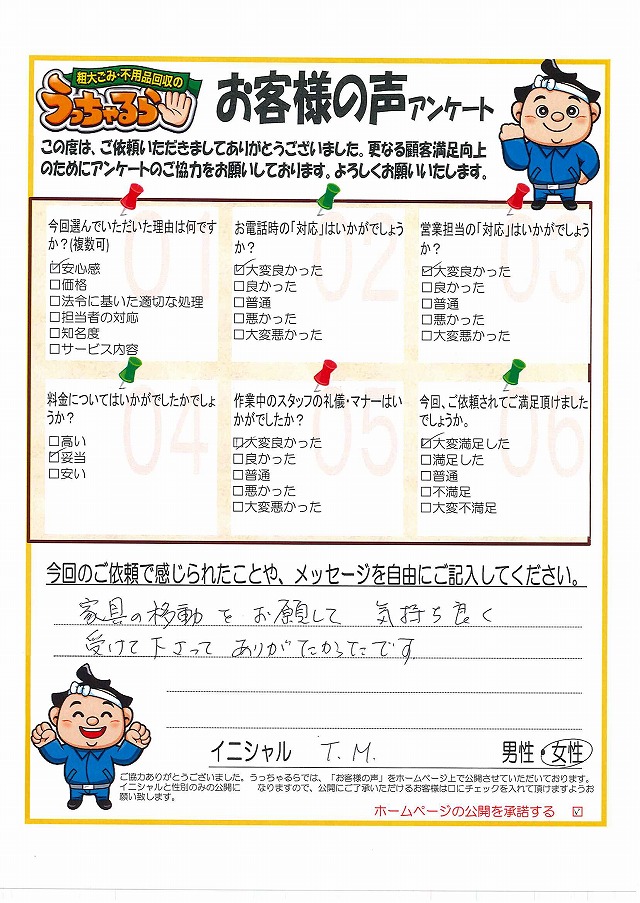 粗大ごみ・不用品回収の
うっちゃるら
お客様の声アンケート
この度は、ご依頼いただきましてありがとうございました。更なる顧客満足向上
のためにアンケートのご協力をお願いしております。よろしくお願いいたします。
01
今回選んでいただいた理由は何です
か？(複数可)
☑安心感
□価格
□法令に基いた適切な処理
□担当者の対応
□知名度
□サービス内容
02
お電話時の「対応」はいかがでしょう
か？
☑大変良かった
□良かった
□普通
□悪かった
□大変悪かった
03
営業担当の「対応」はいかがでしょう
か？
☑大変良かった
□良かった
□普通
□悪かった
□大変悪かった
04
料金についてはいかがでしたかでしょ
うか？
□高い
☑妥当
□安い
05
作業中のスタッフの礼儀・マナーはい
かがでしたか？
☑大変良かった
□良かった
□普通
□悪かった
□大変悪かった
06
今回、ご依頼されてご満足頂けました
でしょうか。
☑大変満足した
□満足した
□普通
□不満足
□大変不満足
今回のご依頼で感じられたことや、メッセージを自由にご記入してください。
家具の移動をお願して 気持ち良く
受けて下さって ありがたかったです
イニシャル T.M. 男性・女性
ご協力ありがとうございました。うっちゃるらでは、「お客様の声」をホームページ上で公開させていただいております。
イニシャルと性別のみの公開に なりますので、公開にご了承いただけるお客様は口にチェックを入れて頂けますようお
願い致します。
ホームページの公開を承諾する ☑